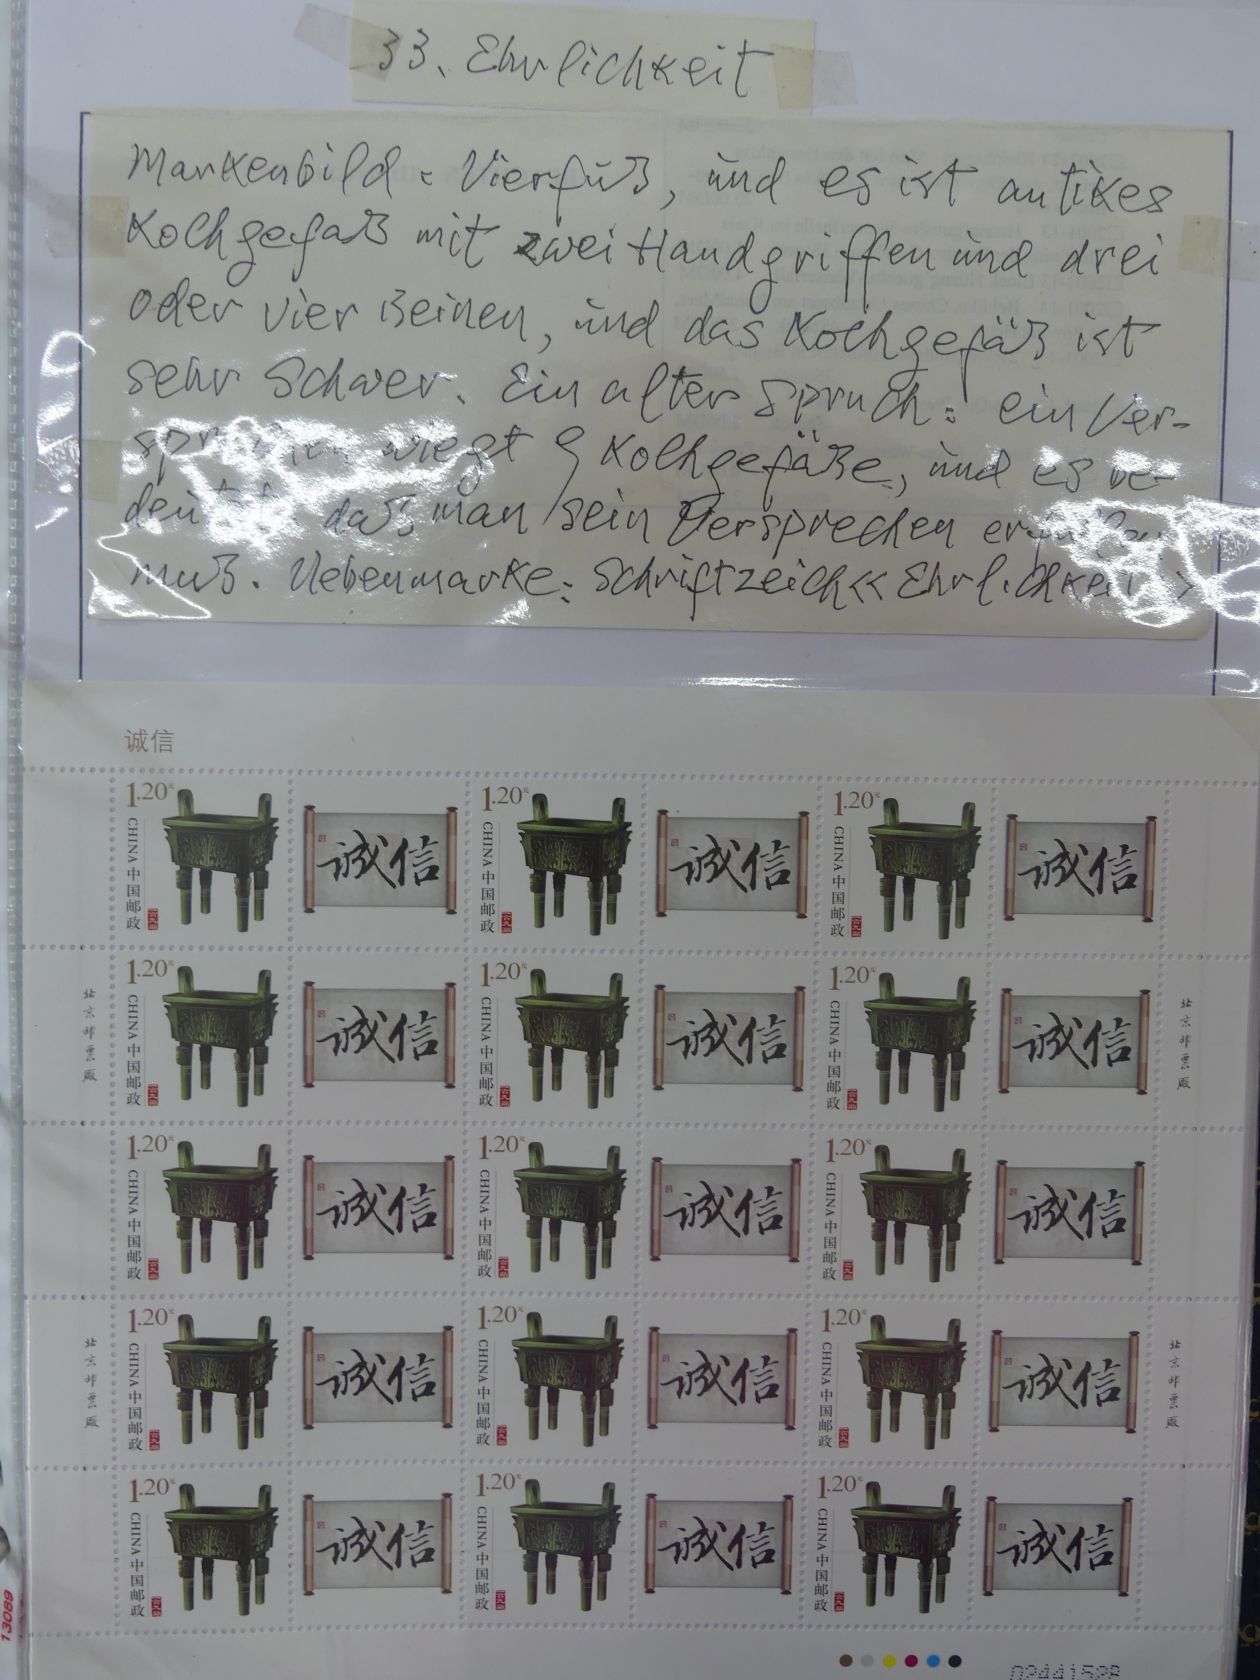 33. Ehrlichkeit
Markenbild: Vierfuß, und es ist antikes
Kochgefäß mit zwei Handgriffen und drei
oder vier Beinen, und das Kochgefäß ist
sehr schwer. Ein alter Spruch: ein Ver-
sprechen wiegt 9 Kochgefäße, und es be-
deutet, daß man sein Versprechen erfüllen
muß. Nebenmarke: Schriftzeich << Ehrlichkeit >
诚信
1.20元 诚信 1.20元 诚信 1.20元 诚信
CHINA 中国邮政 CHINA 中国邮政 CHINA 中国邮政
1.20元 诚信 1.20元 诚信 1.20元 诚信
CHINA 中国邮政 CHINA 中国邮政 CHINA 中国邮政
北京邮票厂 北京邮票厂
1.20元 诚信 1.20元 诚信 1.20元 诚信
CHINA 中国邮政 CHINA 中国邮政 CHINA 中国邮政
1.20元 诚信 1.20元 诚信 1.20元 诚信
CHINA 中国邮政 CHINA 中国邮政 CHINA 中国邮政
北京邮票厂 北京邮票厂
1.20元 诚信 1.20元 诚信 1.20元 诚信
CHINA 中国邮政 CHINA 中国邮政 CHINA 中国邮政
13089